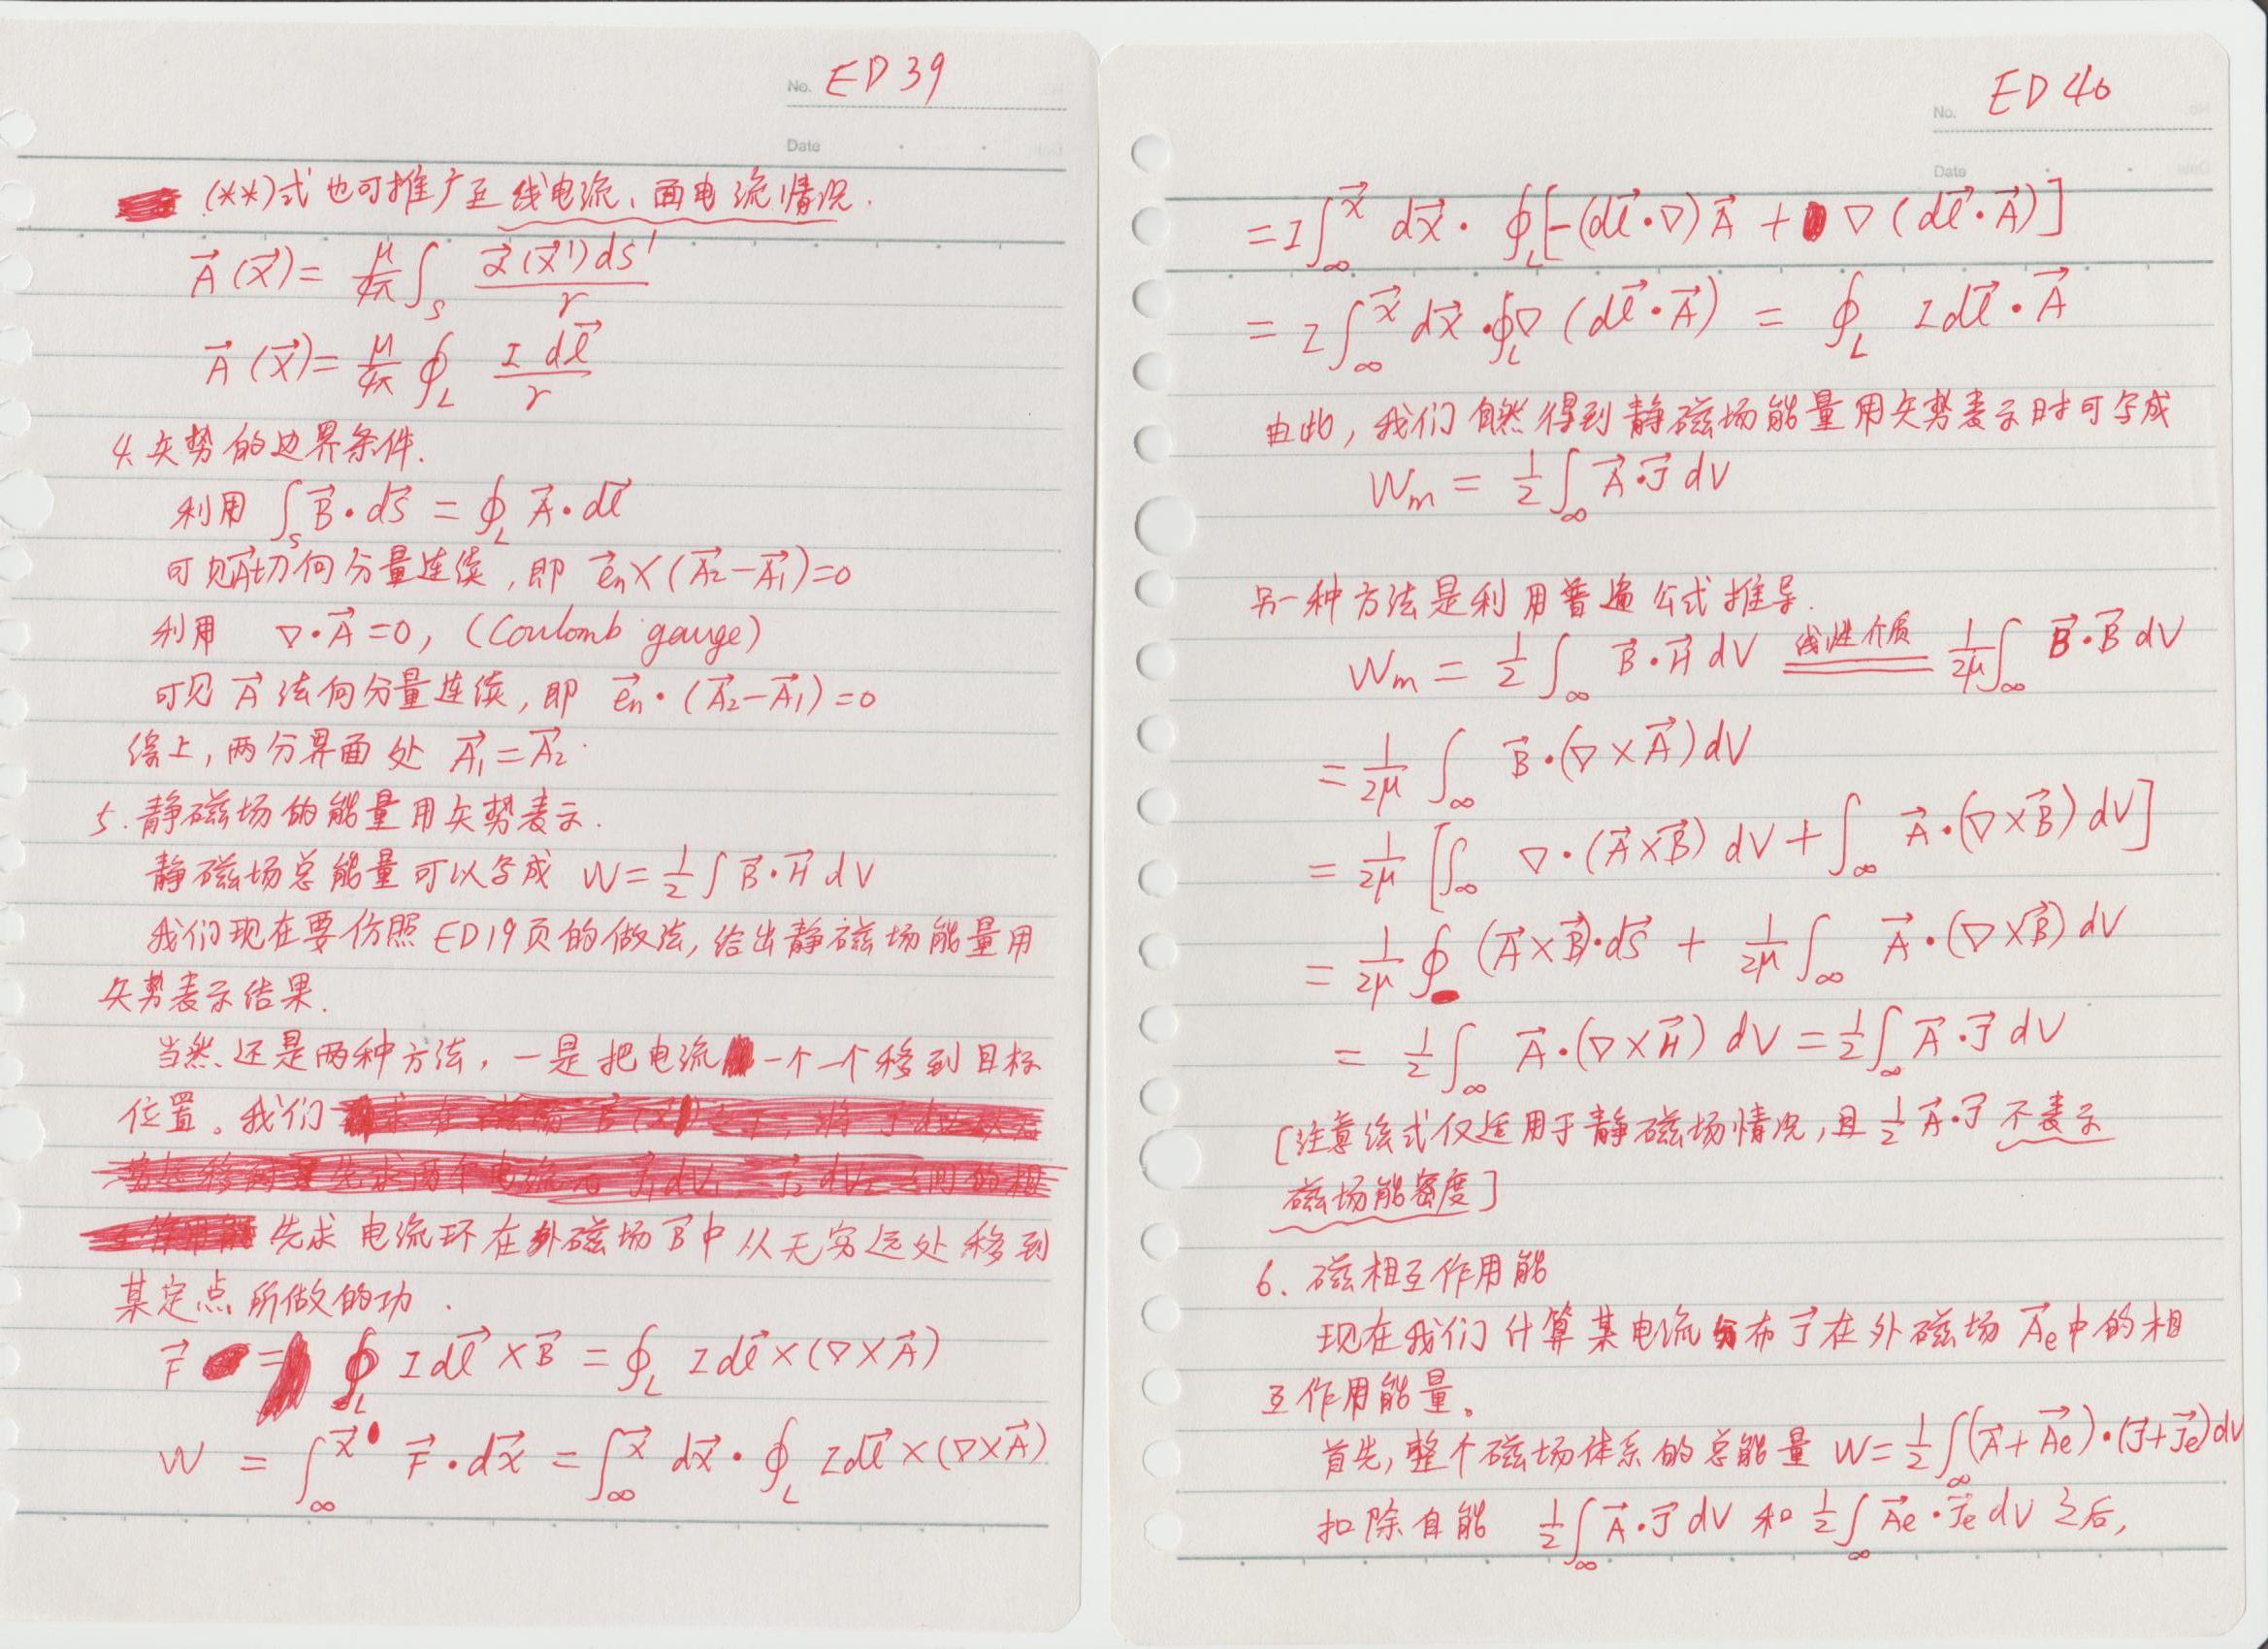 No. ED 39
Date
(**)式也可推广至线电流、面电流情况.
$\vec{A}(\vec{x}) = \frac{\mu}{4\pi}\int_S \frac{\vec{\alpha}(\vec{x}')ds'}{r}$
$\vec{A}(\vec{x}) = \frac{\mu}{4\pi}\oint_L \frac{I d\vec{l}}{r}$
4. 矢势的边界条件.
利用 $\int_S \vec{B}\cdot d\vec{S} = \oint_L \vec{A}\cdot d\vec{l}$
可见$\vec{A}$切向分量连续, 即 $\vec{e}_n\times(\vec{A}_2-\vec{A}_1)=0$
利用 $\nabla\cdot\vec{A}=0$, (Coulomb gauge)
可见 $\vec{A}$ 法向分量连续, 即 $\vec{e}_n\cdot(\vec{A}_2-\vec{A}_1)=0$
综上, 两分界面处 $\vec{A}_1=\vec{A}_2$.
5. 静磁场的能量用矢势表示.
静磁场总能量可以写成 $W=\frac{1}{2}\int\vec{B}\cdot\vec{H}dV$
我们现在要仿照ED19页的做法, 给出静磁场能量用
矢势表示结果.
当然还是两种方法, 一是把电流一个一个移到目标
位置。我们
先求电流环在外磁场$\vec{B}$中从无穷远处移到
某定点所做的功.
$\vec{F} = \oint_L Id\vec{l}\times\vec{B} = \oint_L Id\vec{l}\times(\nabla\times\vec{A})$
$W = \int_\infty^{\vec{x}}\vec{F}\cdot d\vec{x} = \int_\infty^{\vec{x}}d\vec{x}\cdot\oint_L Id\vec{l}\times(\nabla\times\vec{A})$
No. ED 40
Date
$= I\int_\infty^{\vec{x}}d\vec{x}\cdot\oint_L[-(d\vec{l}\cdot\nabla)\vec{A}+\nabla(d\vec{l}\cdot\vec{A})]$
$= I\int_\infty^{\vec{x}}d\vec{x}\cdot\oint_L\nabla(d\vec{l}\cdot\vec{A}) = \oint_L Id\vec{l}\cdot\vec{A}$
由此, 我们自然得到静磁场能量用矢势表示时可写成
$W_m = \frac{1}{2}\int_\infty\vec{A}\cdot\vec{J}dV$
另一种方法是利用普遍公式推导.
$W_m = \frac{1}{2}\int_\infty\vec{B}\cdot\vec{H}dV \overset{线性介质}{=} \frac{1}{2\mu}\int_\infty\vec{B}\cdot\vec{B}dV$
$= \frac{1}{2\mu}\int_\infty\vec{B}\cdot(\nabla\times\vec{A})dV$
$= \frac{1}{2\mu}[\int_\infty\nabla\cdot(\vec{A}\times\vec{B})dV+\int_\infty\vec{A}\cdot(\nabla\times\vec{B})dV]$
$= \frac{1}{2\mu}\oint(\vec{A}\times\vec{B})\cdot d\vec{S}+\frac{1}{2\mu}\int_\infty\vec{A}\cdot(\nabla\times\vec{B})dV$
$= \frac{1}{2}\int_\infty\vec{A}\cdot(\nabla\times\vec{H})dV = \frac{1}{2}\int_\infty\vec{A}\cdot\vec{J}dV$
[注意该式仅适用于静磁场情况, 且$\frac{1}{2}\vec{A}\cdot\vec{J}$不表示
磁场能密度]
6. 磁相互作用能
现在我们计算某电流分布$\vec{J}$在外磁场$\vec{A}_e$中的相
互作用能量。
首先, 整个磁场体系的总能量 $W=\frac{1}{2}\int_\infty(\vec{A}+\vec{A}_e)\cdot(\vec{J}+\vec{J}_e)dV$
扣除自能 $\frac{1}{2}\int_\infty\vec{A}\cdot\vec{J}dV$ 和 $\frac{1}{2}\int_\infty\vec{A}_e\cdot\vec{J}_e dV$ 之后,